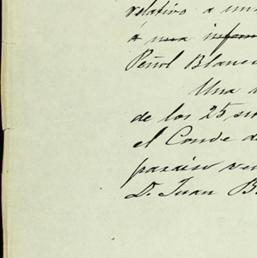 relativo a un
á una inform
Peñol Blanc
Una
de los 25
el Conde d
paraiso ve
D. Juan B